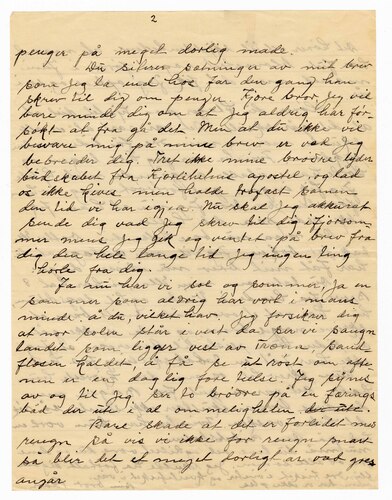 2
penger på meget dårlig måde.
Du siterer satninger av mit brev
som jeg la ind hos far den gang han
skrev til dig om penger. Kjøre bror, jeg vil
bare minde dig om at jeg aldrig har for-
søkt at fra gå det. Men at du ikke vil
besvare mig på mine brev er vad jeg
bebreider dig. Vet ikke mine brødre lyder
budskabet fra Kjærlihetens apostel, og lad
os ikke kives men holde fast samen
den tid vi har igjen. Nu skal jeg akkurat
sende dig vad jeg skrev til dig i fjorsom-
mer mens jeg gik og ventet på brev fra
dig den hele lange tid jeg ingen ting
hørte fra dig.
Ja nu har vi sol og sommer, ja en
sommer som aldrig har vært i mans
minde å du, vilket hav. Jeg forsikrer dig
at når solen står i vest da ser vi
landet som ligger vest av
å få se ut røst om afte-
nen er en daglig forelse. Jeg synes
av og til jeg ser to brødre på en færings
båd der ute i al om meligheten
Bare skade at det er forladet med
regn på vis vi ikke for regn snart
så blir det et meget dårligt år vad gres
angår.